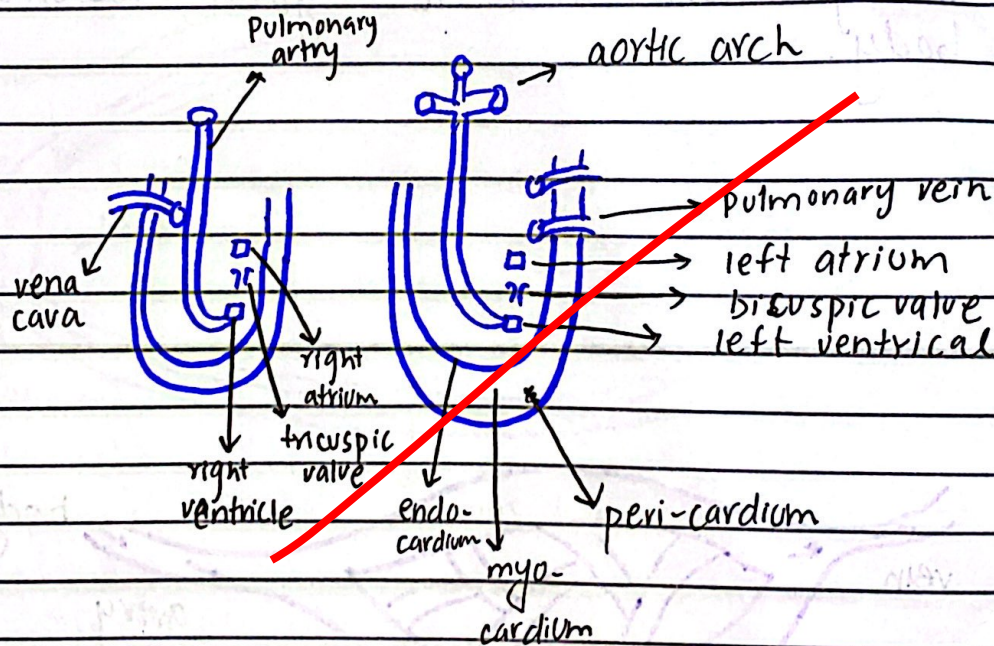 Pulmonary
artry
aortic arch
pulmonary vein
vena
cava
left atrium
bicuspic value
left ventrical
right
atrium
tricuspic
value
right
ventricle
endo-
cardium
peri-cardium
myo-
cardium
body
vein